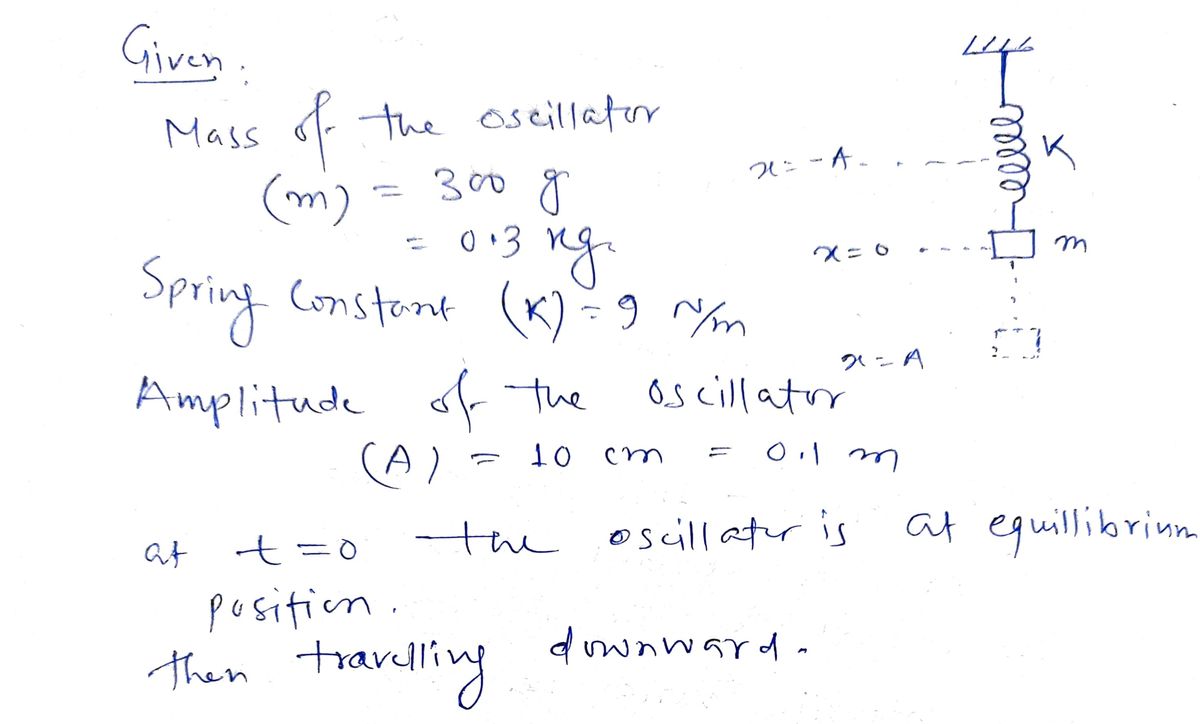 Given :
Mass of the oscillator
(m) = 300 g
= 0.3 kg.
Spring Constant (K) = 9 N/m
Amplitude of the oscillator
(A) = 10 cm = 0.1 m
at t=0 the oscillator is at equillibrium
position.
then travelling downward.
K
x=-A
x=0
m
x=A